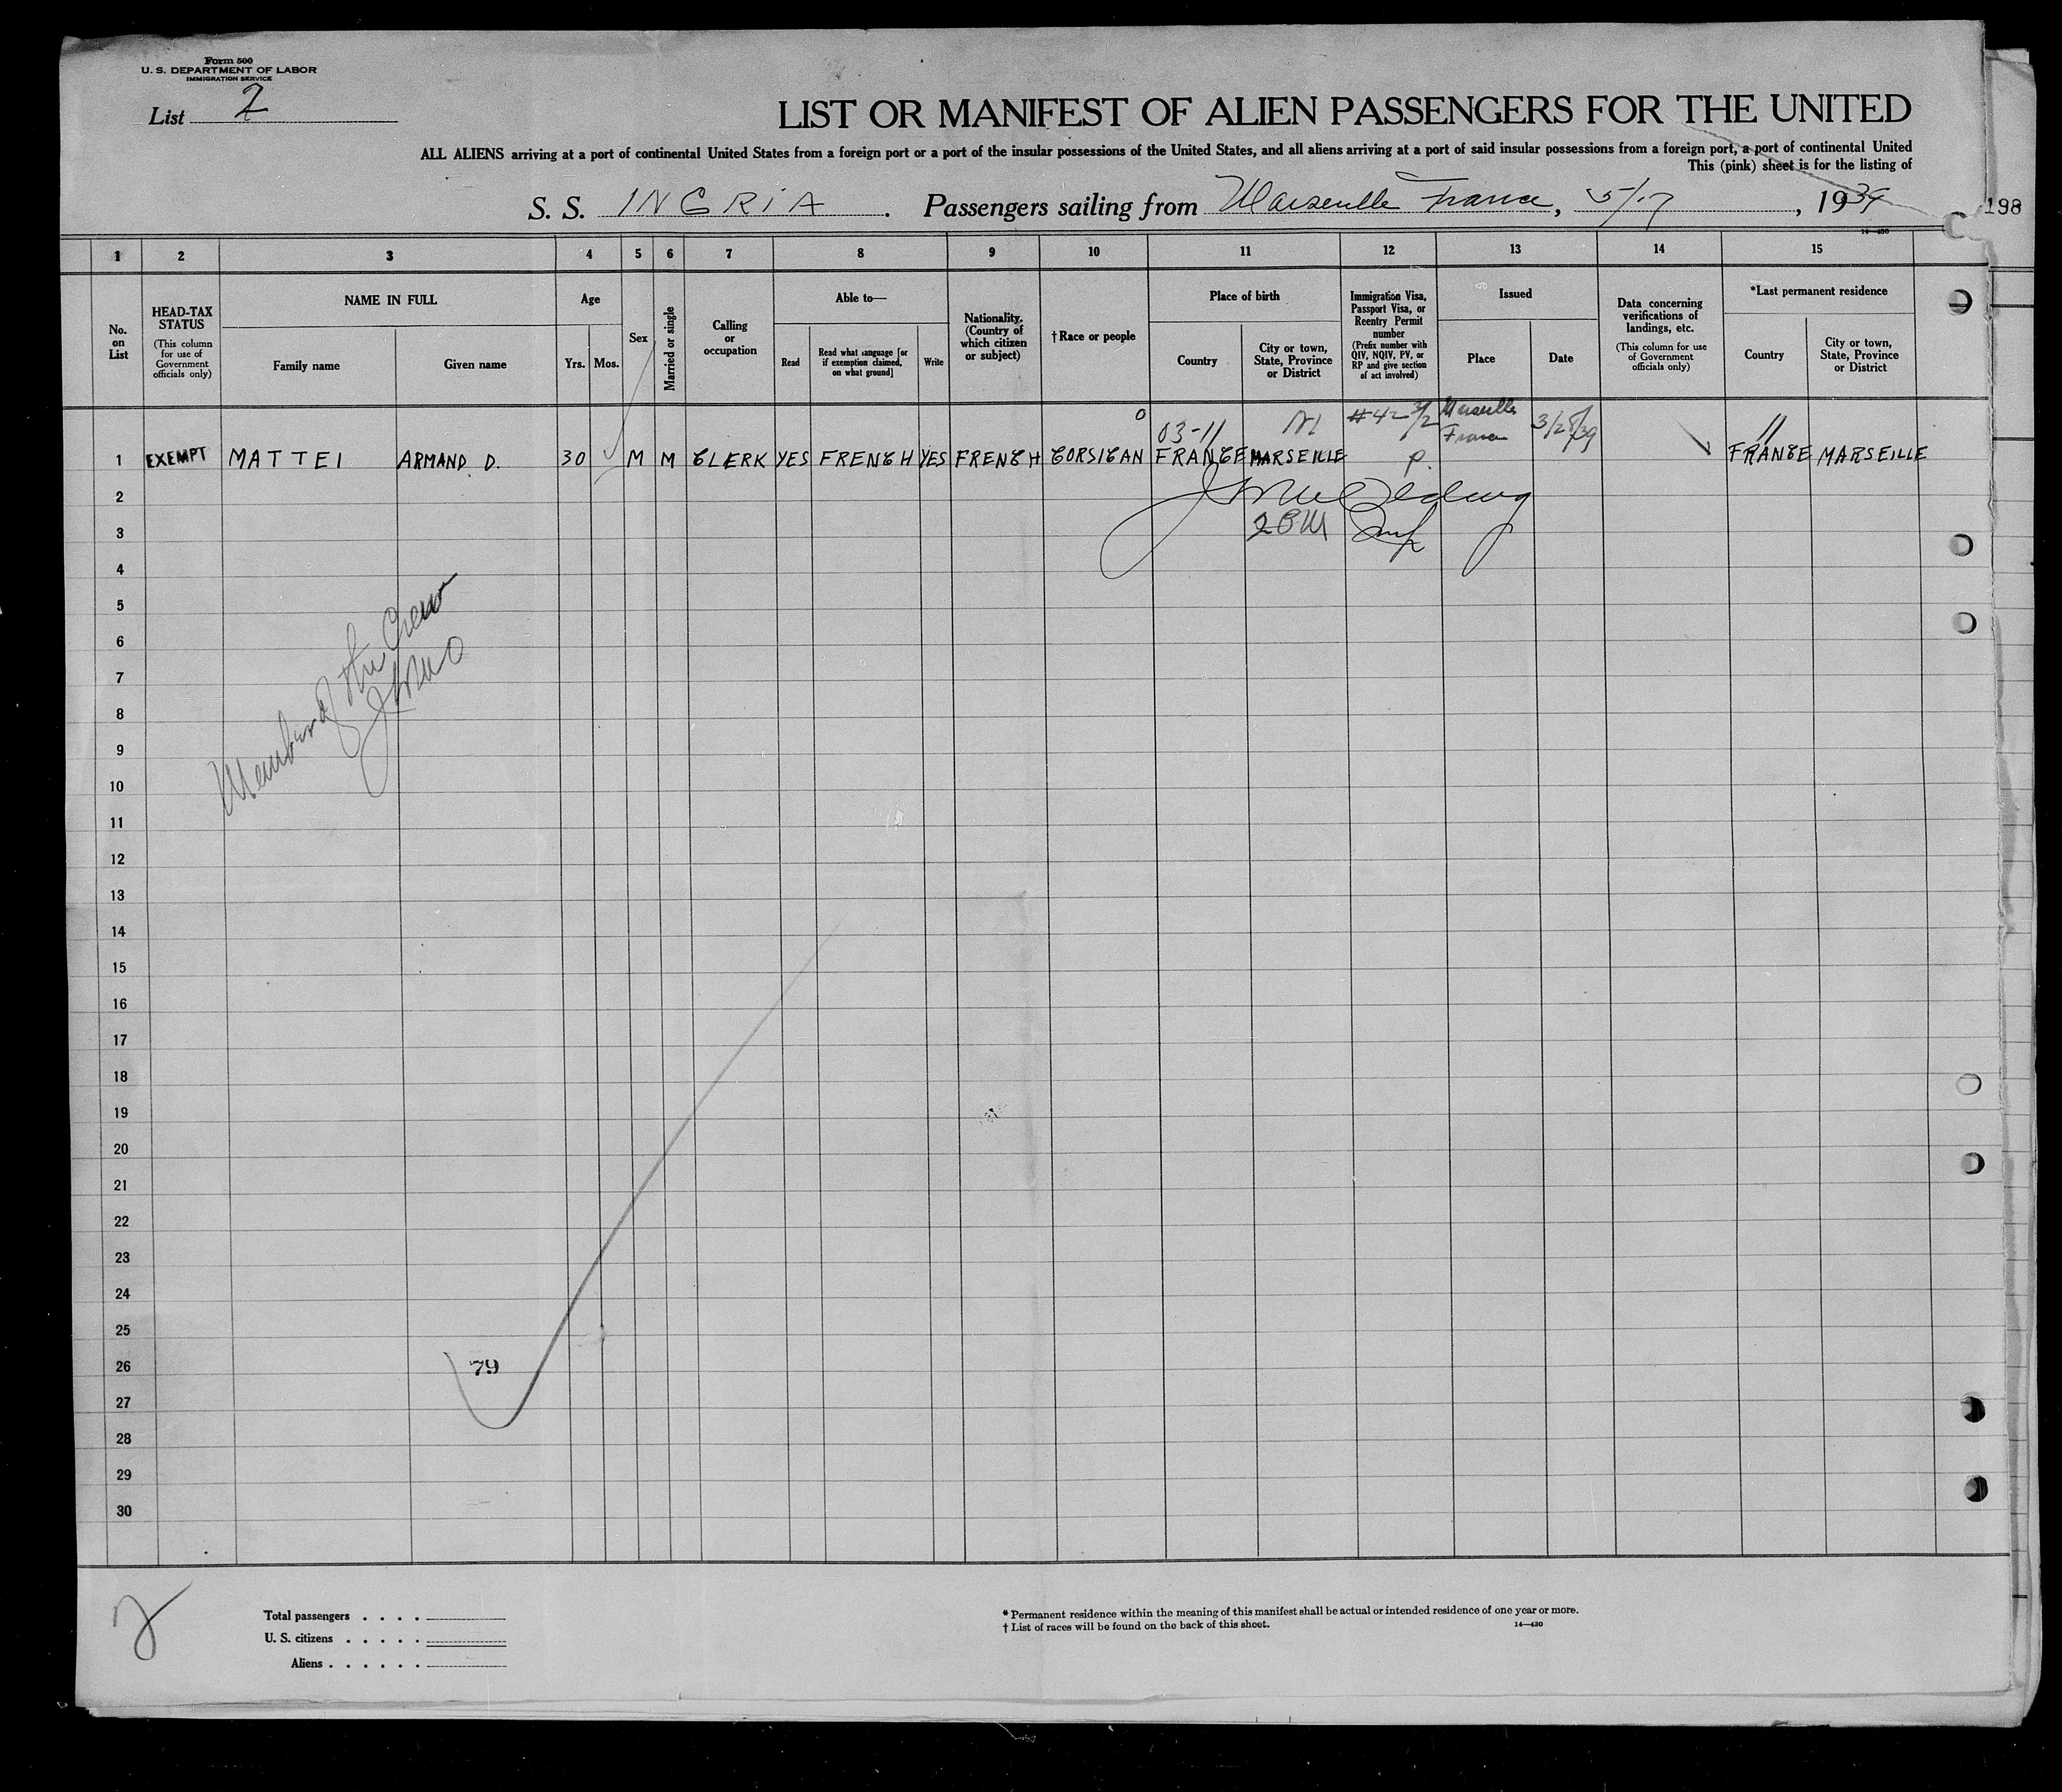 Form 500
U. S. DEPARTMENT OF LABOR
IMMIGRATION SERVICE
List 2
LIST OR MANIFEST OF ALIEN PASSENGERS FOR THE UNITED
ALL ALIENS arriving at a port of continental United States from a foreign port or a port of the insular possessions of the United States, and all aliens arriving at a port of said insular possessions from a foreign port, a port of continental United
This (pink) sheet is for the listing of
S. S. INGRIA. Passengers sailing from Marseille France, 5/17, 1939
198
14—430
1 2 3 4 5 6 7 8 9 10 11 12 13 14 15
No. on List
HEAD-TAX STATUS
(This column for use of Government officials only)
NAME IN FULL
Family name
Given name
Age
Yrs.
Mos.
Sex
Married or single
Calling or occupation
Able to—
Read
Read what language [or if exemption claimed, on what ground]
Write
Nationality. (Country of which citizen or subject)
† Race or people
Place of birth
Country
City or town, State, Province or District
Immigration Visa, Passport Visa, or Reentry Permit number
(Prefix number with QIV, NQIV, PV, or RP and give section of act involved)
Issued
Place
Date
Data concerning verifications of landings, etc.
(This column for use of Government officials only)
*Last permanent residence
Country
City or town, State, Province or District
03-11 Marseille
France
1 EXEMPT MATTEI ARMAND D. 30 M M CLERK YES FRENCH YES FRENCH CORSICAN FRANCE MARSEILLE P. FRANCE MARSEILLE
2
3
4
5
6
7
8
9
10
11
12
13
14
15
16
17
18
19
20
21
22
23
24
25
26
27
28
29
30
Member of the Crew
79
2
Total passengers . . . .
U. S. citizens . . . . .
Aliens . . . . . .
* Permanent residence within the meaning of this manifest shall be actual or intended residence of one year or more.
† List of races will be found on the back of this sheet.
14—430